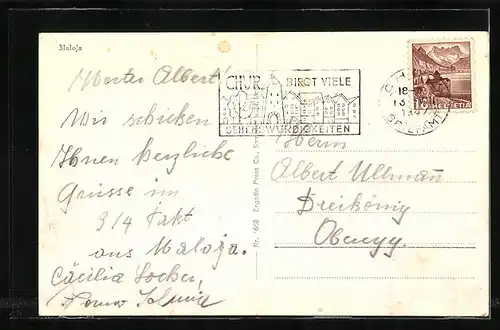 Maloja
Werter Albert!
Wir schicken
Ihnen herzliche
Grüsse im
3/4 Takt
aus Maloja.
Cäcilia Locher,
CHUR BIRGT VIELE
SEHENSWÜRDIGKEITEN
HELVETIA
Nr. 1660 Engadin Press Co.
Herrn
Albert Ullmann
Dreikönig
Oberegg.